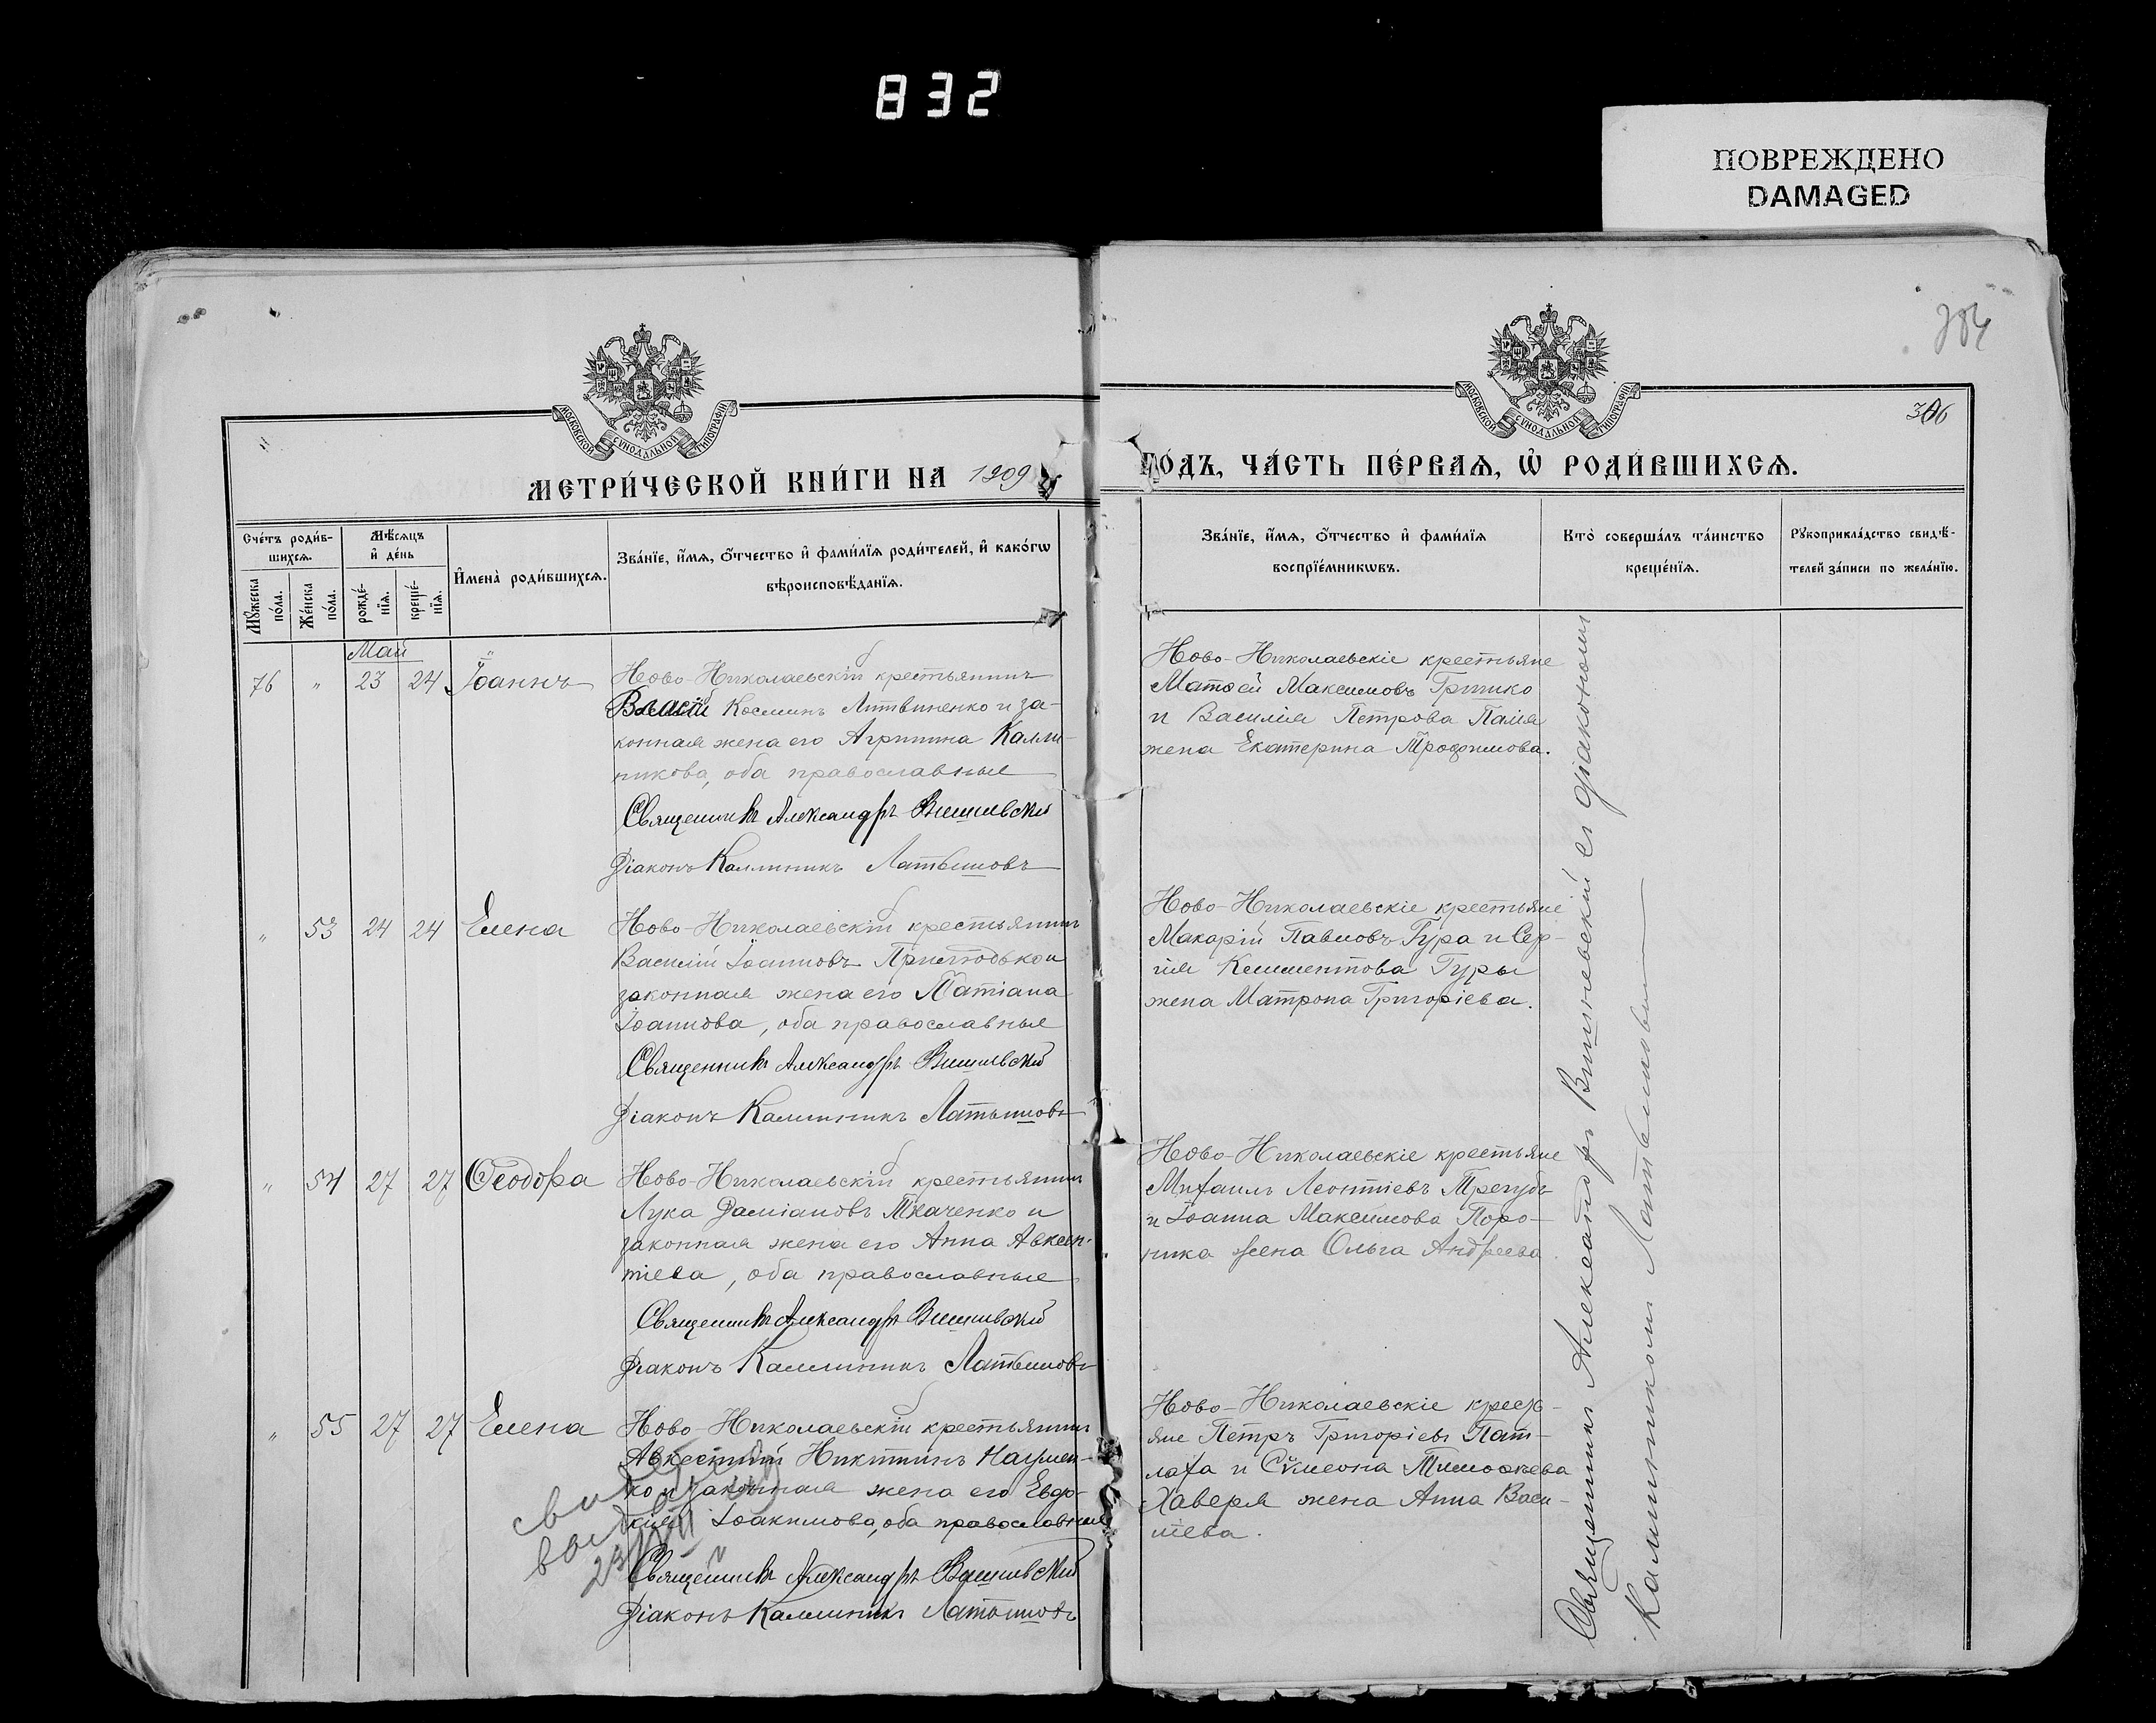 832
ПОВРЕЖДЕНО
DAMAGED
306
МОСКОВСКОЙ СѴНОДАЛЬНОЙ ТИПОГРАФІИ
МОСКОВСКОЙ СѴНОДАЛЬНОЙ ТИПОГРАФІИ
МЕТРИ́ЧЕСКОЙ КНИ́ГИ НА 1909
ГО́ДЪ, ЧА́СТЬ ПЕ́РВАЯ, Ѡ҆ РОДИ́ВШИХСЯ.
Сче́тъ роди́в-
шихся.
Мꙋжеска по́ла.
Же́нска по́ла.
Мѣ́сяцъ
и҆ де́нь
рожде́-нїя.
креще́-нїя.
И҆мена̀ роди́вшихся.
Зва́нїе, и҆́мя, ѻ҆́тчество и҆ фами́лїя роди́телей, и҆ како́гѡ
вѣроисповѣ́данїя.
Зва́нїе, и҆́мя, ѻ҆́тчество и҆ фами́лїя
воспрїе́мникѡвъ.
Кто̀ соверша́лъ та́инство
креще́нїя.
Рꙋкоприкла́дство свидѣ́-
телей за́писи по жела́нїю.
Май
76 " 23 24 Іоаннъ
Ново-Николаевскій крестьянинъ
Власій Косминъ Литвиненко и за-
конная жена его Агрипина Калли-
никова, оба православные
Священникъ Александръ Вишневскій
Діаконъ Каллиникъ Латышовъ
Ново-Николаевскіе крестьяне
Матѳей Максимовъ Гришко
и Василія Петрова Палія
жена Екатерина Трофимова.
" 53 24 24 Елена
Ново-Николаевскій крестьянинъ
Василій Іоанновъ Прилюдько и
законная жена его Татіана
Іоаннова, оба православные
Священникъ Александръ Вишневскій
Діаконъ Каллиникъ Латышовъ
Ново-Николаевскіе крестьяне
Макарій Павловъ Гура и Сер-
гія Климентова Гуры
жена Матрона Григоріева.
" 54 27 27 Ѳеодора
Ново-Николаевскій крестьянинъ
Лука Даміановъ Ткаченко и
законная жена его Анна Авксен-
тіева, оба православные
Священникъ Александръ Вишневскій
Діаконъ Каллиникъ Латышовъ
Ново-Николаевскіе крестьяне
Михаилъ Леонтіевъ Трегубъ
и Іоанна Максимова Поро-
ника жена Ольга Андреева
" 55 27 27 Елена
Ново-Николаевскій крестьянинъ
Авксентій Никитинъ Наумен-
ко и законная жена его Евдо-
кія Іоакимова, оба православные
Священникъ Александръ Вишневскій
Діаконъ Каллиникъ Латышовъ
Ново-Николаевскіе кресть-
яне Петръ Григоріевъ Пат-
лаха и Сѷмеона Тимоѳеева
Хаверя жена Анна Васи-
ліева.
Священникъ Александръ Вишневскій съ діакономъ
Каллиникомъ Латышовымъ